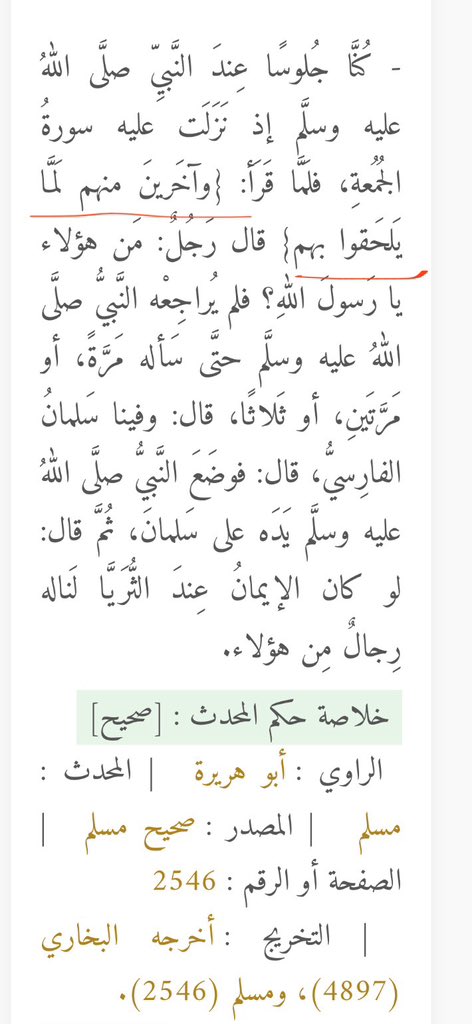 - كُنَّا جُلوسًا عِندَ النَّبيِّ صلَّى اللهُ
عليه وسلَّم إذ نَزَلَت عليه سورةُ
الجُمُعةِ، فلَمَّا قَرَأَ: {وآخَرينَ منهم لَمَّا
يَلحَقوا بهم} قال رَجُلٌ: مَن هؤلاء
يا رَسولَ اللهِ؟ فلم يُراجِعْه النَّبيُّ صلَّى
اللهُ عليه وسلَّم حتَّى سَأله مَرَّةً، أو
مَرَّتَينِ، أو ثَلاثًا، قال: وفينا سَلمانُ
الفارِسيُّ، قال: فوضَعَ النَّبيُّ صلَّى اللهُ
عليه وسلَّم يَدَه على سَلمانَ، ثُمَّ قال:
لو كان الإيمانُ عِندَ الثُّرَيَّا لَناله
رِجالٌ مِن هؤلاء.
خلاصة حكم المحدث : [صحيح]
الراوي : أبو هريرة | المحدث :
مسلم | المصدر : صحيح مسلم |
الصفحة أو الرقم : 2546
| التخريج : أخرجه البخاري
(4897)، ومسلم (2546).